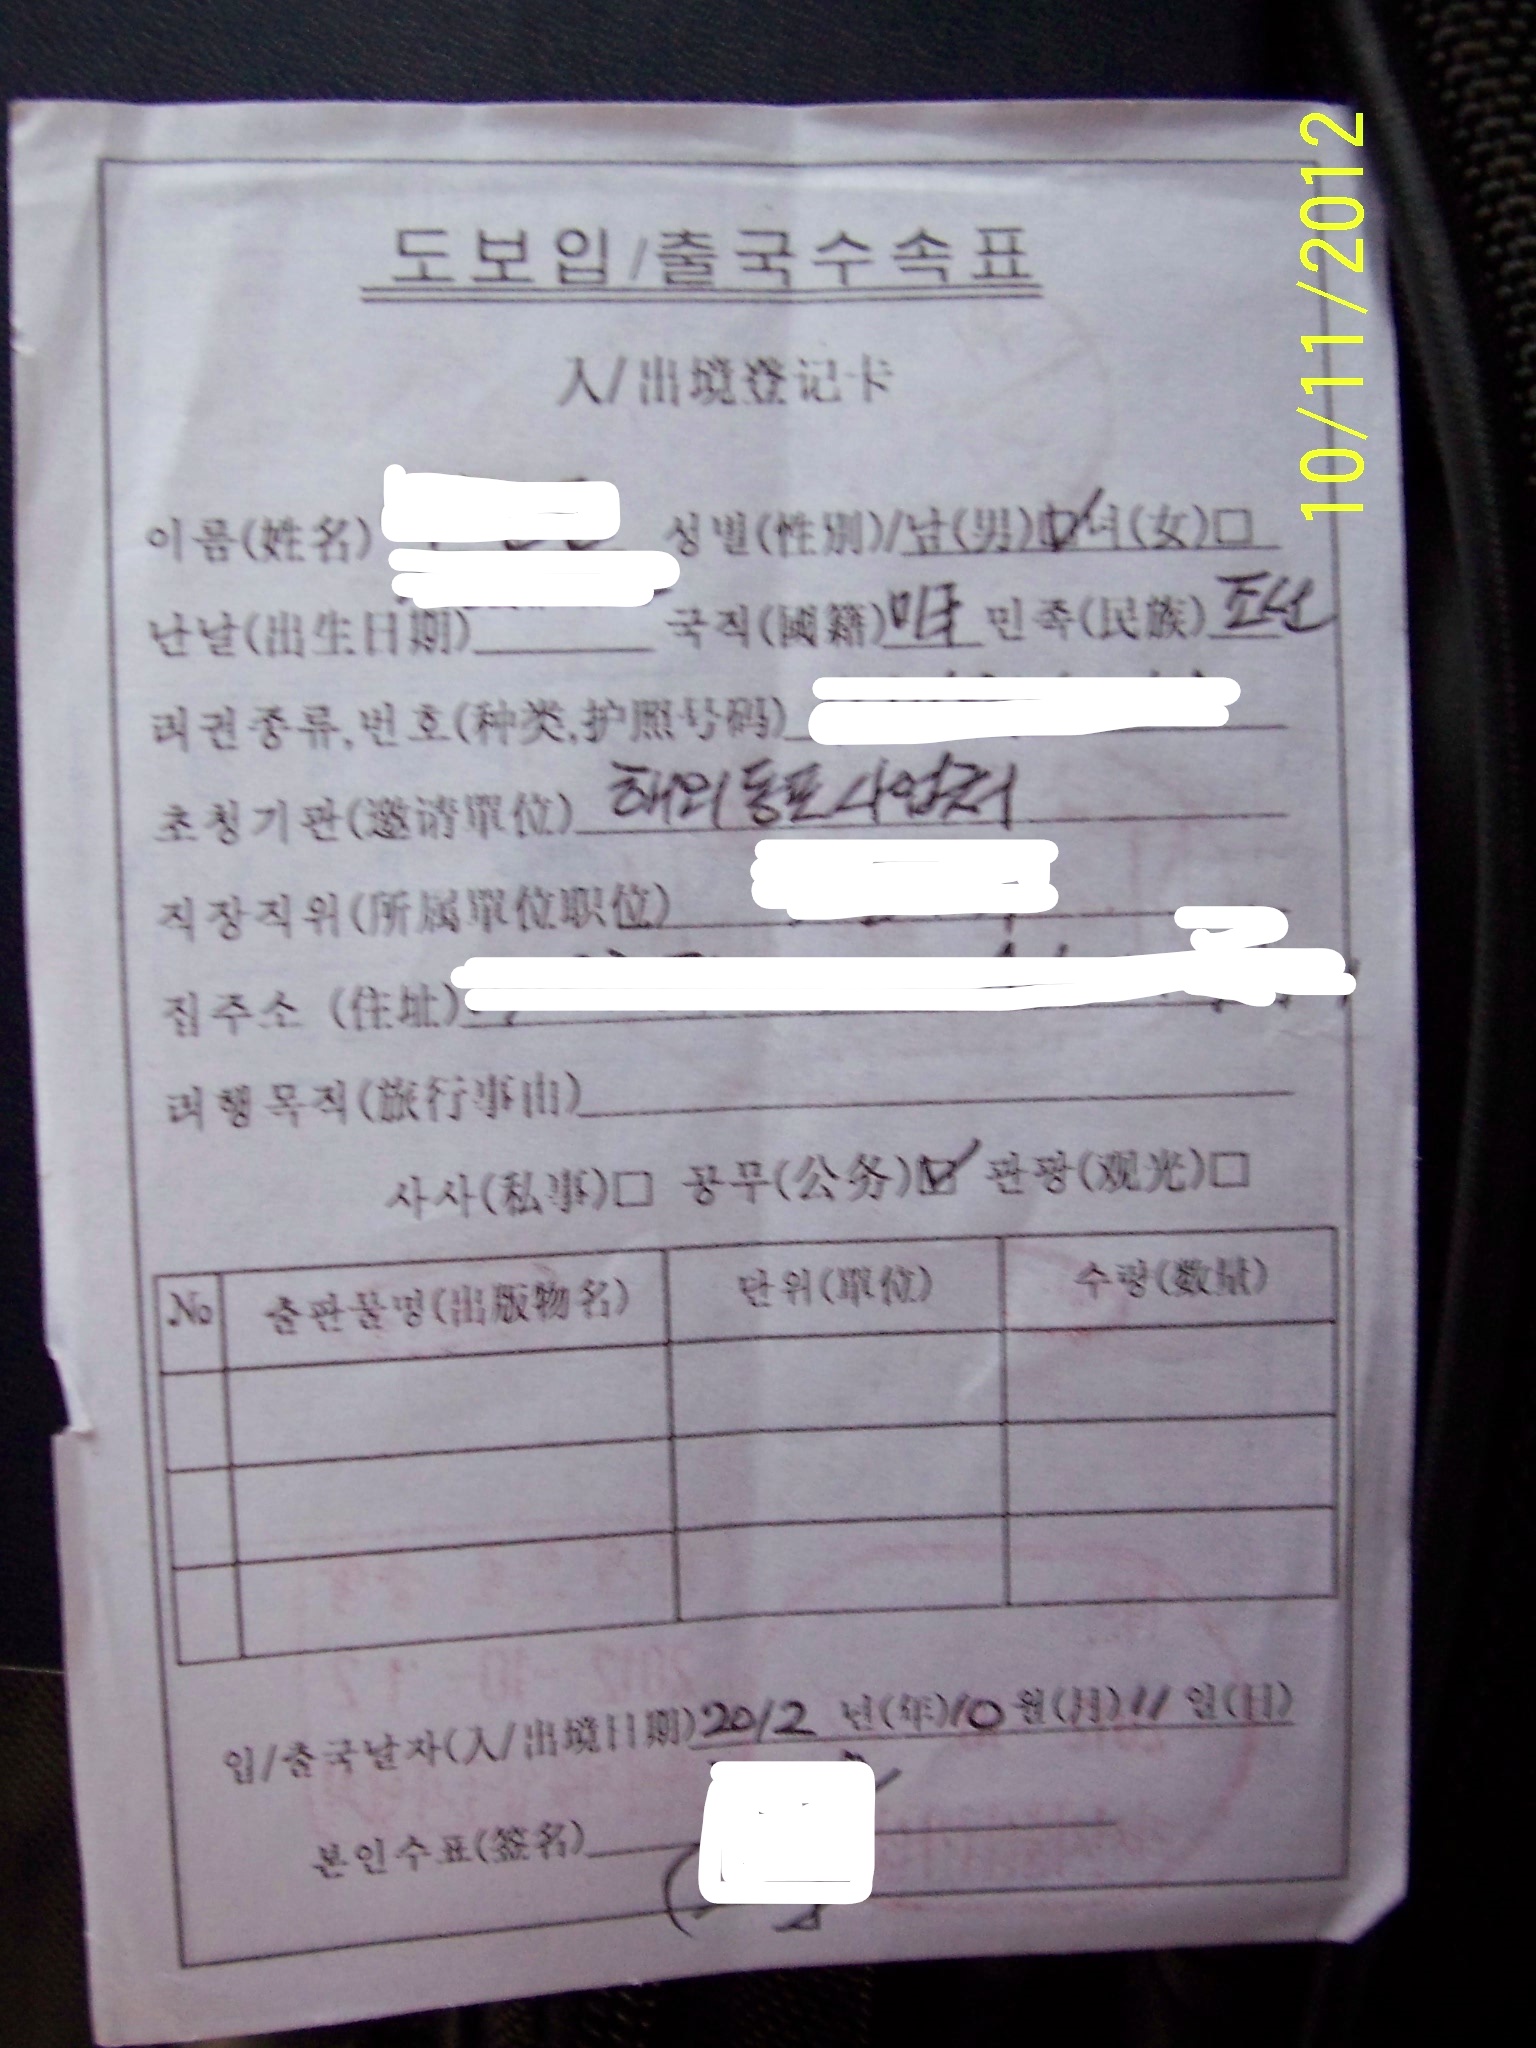 10/11/2012
도보입/출국수속표
入/出境登记卡
이름(姓名) 성별(性別)/남(男)☑녀(女)□
난날(出生日期) 국적(國籍) 미국 민족(民族) 조선
려권종류,번호(种类,护照号码)
초청기관(邀请單位) 해외동포사업처
직장직위(所属單位职位)
집주소 (住址)
려행목적(旅行事由)
사사(私事)□ 공무(公务)☑ 관광(观光)□
No 출판물명(出版物名) 단위(單位) 수량(数量)
입/출국날자(入/出境日期) 2012 년(年) 10 월(月) 11 일(日)
본인수표(签名)